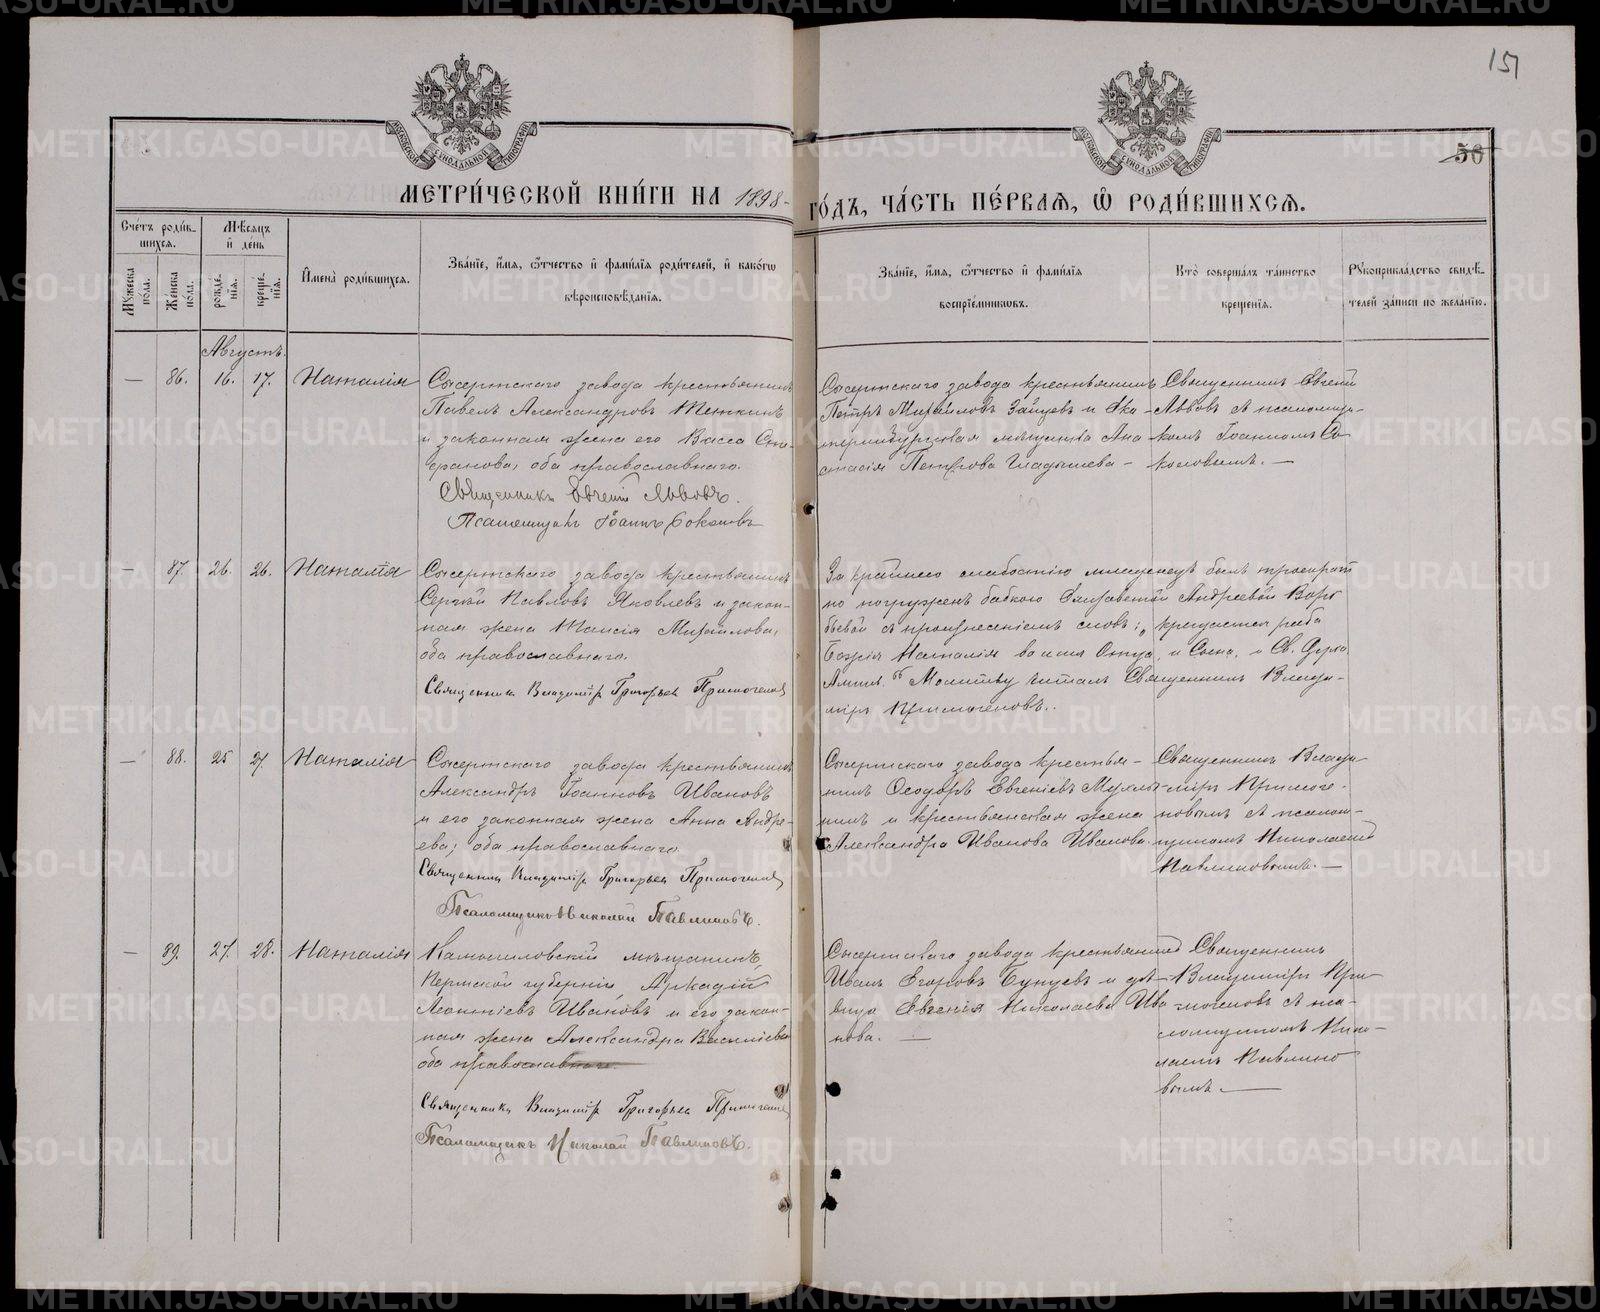 151
МОСКОВСКОЙ СѴНОДАЛЬНОЙ ТИПОГРАФІИ
МОСКОВСКОЙ СѴНОДАЛЬНОЙ ТИПОГРАФІИ
56
МЕТРИ́ЧЕСКОЙ КНИ́ГИ НА 1898-
ГО́ДЪ, ЧА́СТЬ ПЕ́РВАѦ, Ѡ҆ РОДИ́ВШИХСѦ.
Сче́тъ роди́вшихсѧ.
Мѣ́сѧцъ и҆ де́нь
Мꙋ́жеска по́ла.
Же́нска по́ла.
рожде́нїѧ.
креще́нїѧ.
И҆мена̀ роди́вшихсѧ.
Зва́нїе, и҆́мѧ, ѻ҆́тчество и҆ фами́лїѧ роди́телей, и҆ како́гѡ
вѣроисповѣ́данїѧ.
Зва́нїе, и҆́мѧ, ѻ҆́тчество и҆ фами́лїѧ
воспрїе́мникѡвъ.
Кто̀ соверша́лъ та́инство
креще́нїѧ.
Рꙋкоприкла́дство свидѣ́телей за́писи по жела́нїю.
Августъ.
— 86. 16. 17. Наталія
Сысертскаго завода крестьянинъ
Павелъ Александровъ Теткинъ
и законная жена его Васса Сте-
фанова, оба православнаго.
Священникъ Евгеній Львовъ.
Псаломщикъ Іоаннъ Соколовъ
Сысертскаго завода крестьянинъ
Петръ Михайловъ Зайцевъ и Ека-
теринбургская мѣщанка Ана
стасія Петрова Гладышева —
Священникъ Евгеній
Львовъ съ псаломщи-
комъ Іоанномъ Со
коловымъ. —
— 87. 26. 26. Наталія
Сысертскаго завода крестьянинъ
Сергѣй Павловъ Яковлевъ и закон-
ная жена Таисія Михайлова,
оба православнаго.
Священникъ Владиміръ Григорьевъ Примогеновъ
За крайнею слабостію младенецъ былъ троекрат
но погруженъ бабкою Елизаветой Андреевой Воро
бьевой съ произнесеніемъ словъ: „крещается раба
Божія Наталія во имя Отца, и Сына, и Св. Духа
Аминь.“ Молитву читалъ Священникъ Влади-
міръ Примогеновъ.
— 88. 25 27. Наталія
Сысертскаго завода крестьянинъ
Александръ Іоанновъ Ивановъ
и его законная жена Анна Андре-
ева; оба православнаго.
Священникъ Владиміръ Григорьевъ Примогеновъ
Псаломщикъ Николай Павлиновъ.
Сысертскаго завода крестья-
нинъ Ѳеодоръ Евгеніевъ
и крестьянская жена
Александра Иванова Иванова.
Священникъ Влади-
міръ Примоге-
новымъ съ псалом-
щикомъ Николаемъ
Павлиновымъ. —
— 89. 27. 28. Наталія
Камышловскій мѣщанинъ,
Пермской губерніи, Аркадій
Леонтіевъ Ивановъ и его закон-
ная жена Александра Василіева
оба православнаго.
Священникъ Владиміръ Григорьевъ Примогеновъ
Псаломщикъ Николай Павлиновъ.
Сысертскаго завода крестьянинъ
Иванъ Егоровъ и дѣ-
вица Евгенія Николаева Ива
нова. —
Священникъ
Владиміръ При-
могеновъ съ пса-
ломщикомъ Нико-
лаемъ Павлино
вымъ. —
METRIKI.GASO-URAL.RU